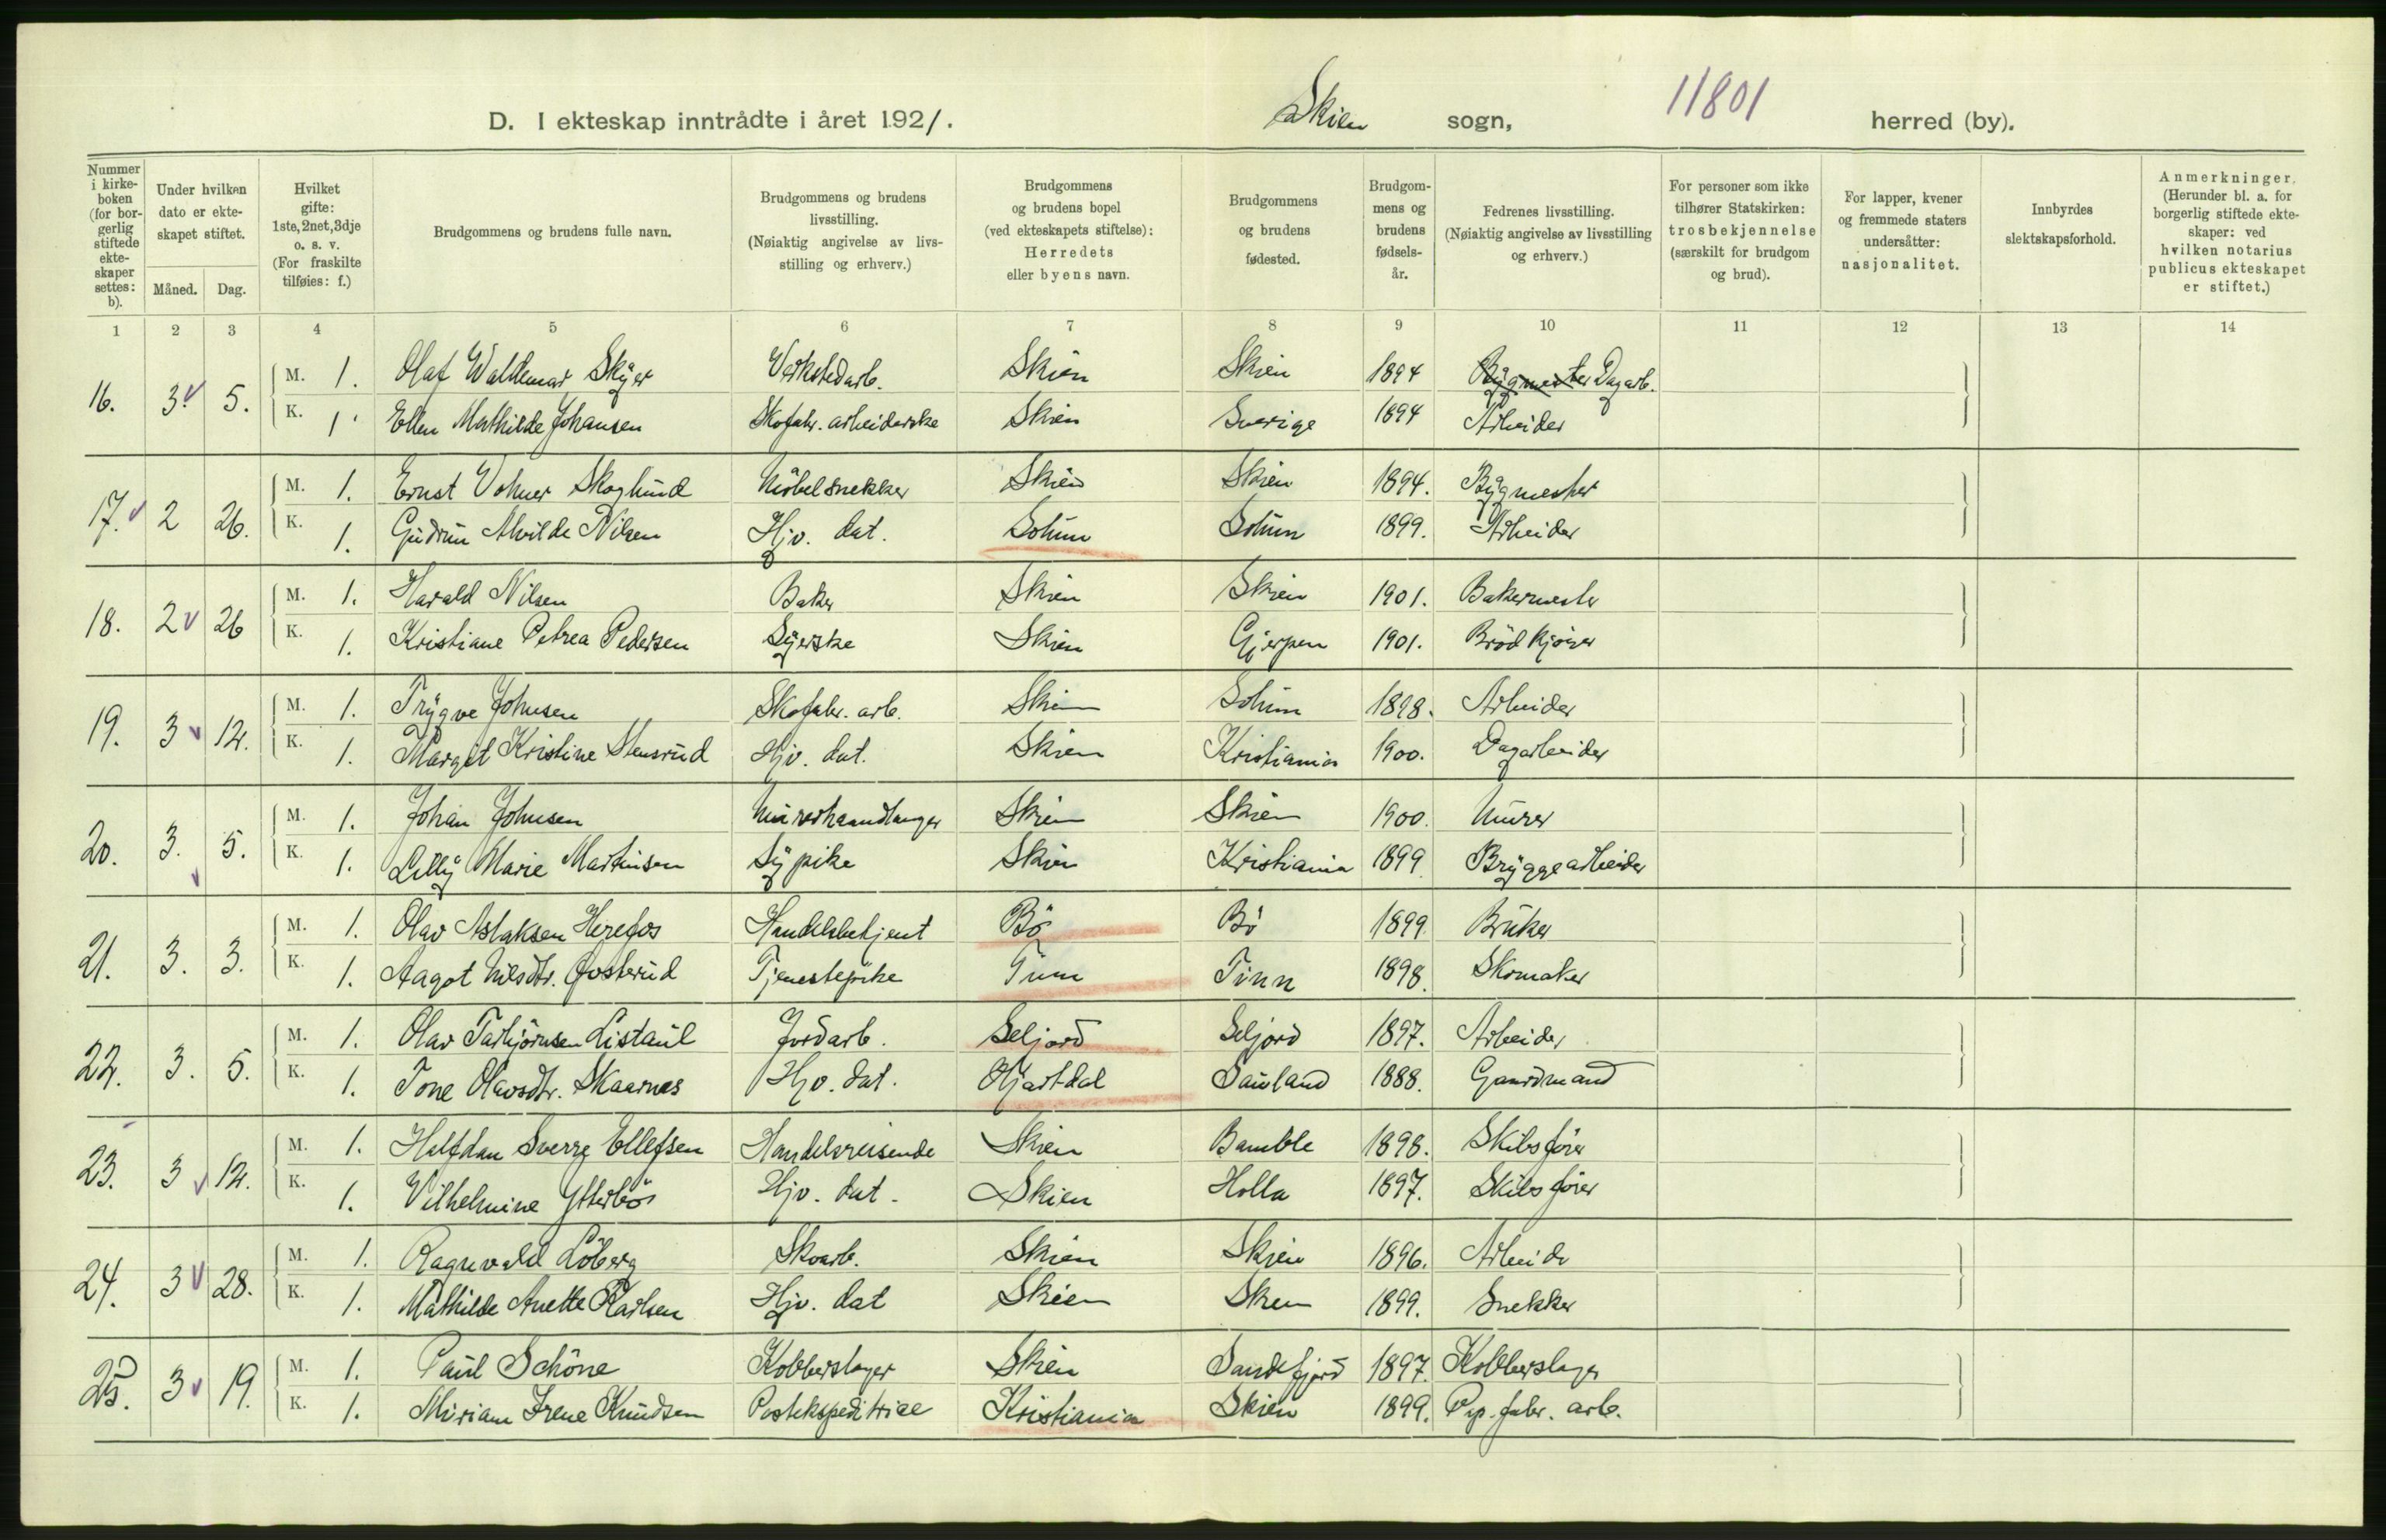 D. I ekteskap inntrådte i året 1921. Skien sogn, 11801 herred (by).
Nummer i kirke-boken (for bor-gerlig stiftede ekte-skaper settes: b).
Under hvilken dato er ekte-skapet stiftet.
Måned. Dag.
Hvilket gifte: 1ste, 2net, 3dje o. s. v. (For fraskilte tilføies: f.)
Brudgommens og brudens fulle navn.
Brudgommens og brudens livsstilling. (Nøiaktig angivelse av livs-stilling og erhverv.)
Brudgommens og brudens bopel (ved ekteskapets stiftelse): Herredets eller byens navn.
Brudgommens og brudens fødested.
Brudgom-mens og brudens fødsels-år.
Fedrenes livsstilling. (Nøiaktig angivelse av livsstilling og erhverv.)
For personer som ikke tilhører Statskirken: trosbekjennelse (særskilt for brudgom og brud).
For lapper, kvener og fremmede staters undersåtter: nasjonalitet.
Innbyrdes slektskapsforhold.
Anmerkninger. (Herunder bl. a. for borgerlig stiftede ekte-skaper: ved hvilken notarius publicus ekteskapet er stiftet.)
1 2 3 4 5 6 7 8 9 10 11 12 13 14
16. 3 5. M. 1. Olaf Waldemar Skyer Verkstedarb. Skien Skien 1894 Bygmester Dagarb.
K. 1. Ellen Mathilde Johansen Skofabr. arbeiderske Skien Sverige 1894 Arbeider
17. 2 26. M. 1. Ernst Volmer Skoglund Möbelsnekker Skien Skien 1894. Bygmester
K. 1. Gudrun Alvilde Nilsen Hjv. dat. Solum Solum 1899. Arbeider
18. 2 26 M. 1. Harald Nilsen Baker Skien Skien 1901. Bakermester
K. 1. Kristiane Petrea Pedersen Syerske Skien Gjerpen 1901. Brödkjörer
19. 3 12. M. 1. Trygve Johnsen Skofabr. arb. Skien Solum 1898. Arbeider
K. 1. Margit Kristine Stensrud Hjv. dat. Skien Kristiania 1900. Dagarbeider
20. 3. 5. M. 1. Johan Johnsen Murerhaandlanger Skien Skien 1900. Murer
K. 1. Lilly Marie Martinsen Sypike Skien Kristiania 1899 Bryggearbeider
21. 3. 3. M. 1. Olav Aslaksen Herefos Handelsbetjent Bö Bö 1899. Bruker
K. 1. Aagot Nilsdtr. Gosterud Tjenestepike Tinn Tinn 1898. Skomaker
22. 3. 5. M. 1. Olav Tarbjörnsen Listaul Jordarb. Seljord Seljord 1897. Arbeider
K. 1. Tone Olavsdtr. Skaarnes Hjv. dat. Hjartdal Sauland 1888. Gaardmand
23. 3 12. M. 1. Halfdan Sverre Ellefsen Handelsreisende Skien Bamble 1898. Skibsförer
K. 1. Vilhelmine Ytterbö Hjv. dat. Skien Holla 1897. Skibsförer
24. 3 28. M. 1. Ragnvald Löberg Skoarb. Skien Skien 1896. Arbeider
K. 1. Mathilde Anette Karlsen Hjv. dat Skien Skien 1899. Snekker
25. 3 19. M. 1. Paul Schöne Kobberslager Skien Sandefjord 1897. Kobberslager
K. 1. Miriam Irene Knudsen Postekspeditrice Kristiania Skien 1899. Pap. fabr. arb.